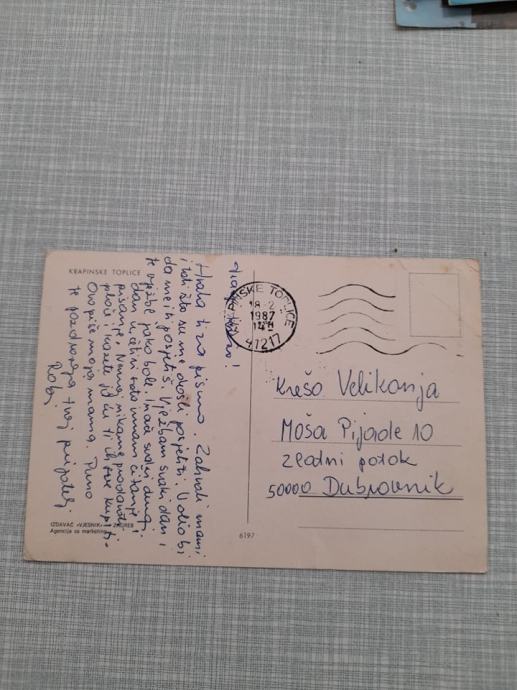 KRAPINSKE TOPLICE
Dragi Krešo!
Hvala ti na pismo. Zahvali mami
i tati što su me došli posjetiti. Volio bi
da me ti posjetiš. Vježbam svaki dan i
te vježbe jako bole. Inače svaki drugi
dan učiteljica imam čitanje i
pisanje. Nemaj nikome
ploče i kazete ja ću ti ih sve kupiti.
Ovo piše moja mama. Puno
te pozdravlja tvoj prijatelj
Robi
IZDAVAČ »VJESNIK« — ZAGREB
Agencija za marketing
6197
KRAPINSKE TOPLICE
18-2
1987
14H
47217
Krešo Velikanja
Moša Pijade 10
zlatni potok
50000 Dubrovnik